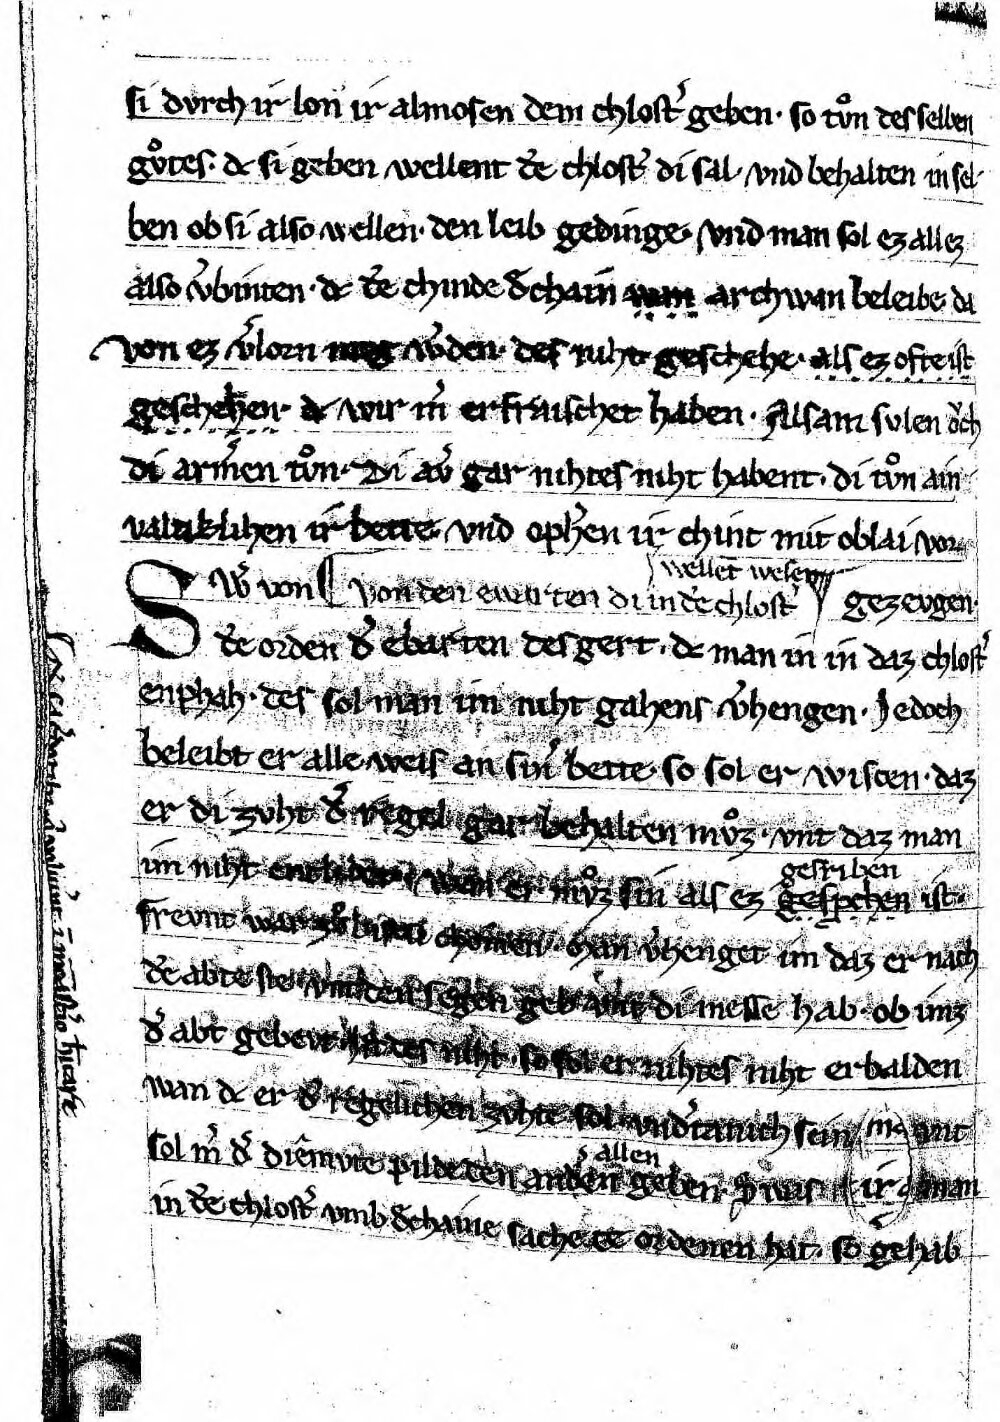 si dvrch ir lon ir almosen dem chlost᷑ geben · so tvͦn des selben
gvͦtes · dc si geben wellent dē chlost᷑ di sal · vnd behalten in sel
ben ob si also wellen · den leib gedinge · vnd man sol ez allez
also v᷑binten · dc dē chinde d᷑chain wan archwan beleibe da
von ez v᷑lorn meg w᷑den · des niht geschehe · als ez ofte ist
geschehen · dc wir m᷑ erfraischet haben · Alsam svlen oͮch
di arm᷑en tvͦn · Di av᷑ gar nihtes niht habent · di tvͦn ain
valtiklihen ir bette · vnd oph᷑en ir chint mit oblai vor
gezevgen ·
von den ewarten di in dē chlost᷑
wellēt wesen
Sw᷑ von
dē orden d᷑ ebarten des gert · dc man in in daz chlost᷑
enphah · des sol man im niht gahens v᷑hengen · Jedoch
beleibt er alle weis an sin᷑ bette · so sol er wiscen · daz
er di zvht d᷑ regel gar behalten mvͦz · vnt daz man
im niht er mvͦz sin als ez gesp᷑chen ist ·
gesriben
frevnt war zvͦ bistu chomen · Man v᷑henget im daz er nach
dē abte ste vnt den segen geb vnt di messe hab · ob imz
d᷑ abt gebevt · des niht · so sol er nihtes niht erbalden
wan dc er d᷑ regelichen zvhte sol vnd᷑tanich sein vnt
sol m᷑ d᷑ diēmvte pilde den andern geben · Swas ir man
allen
in dē chlost᷑ vmb d᷑chaine sache ordenen hat · so gehab